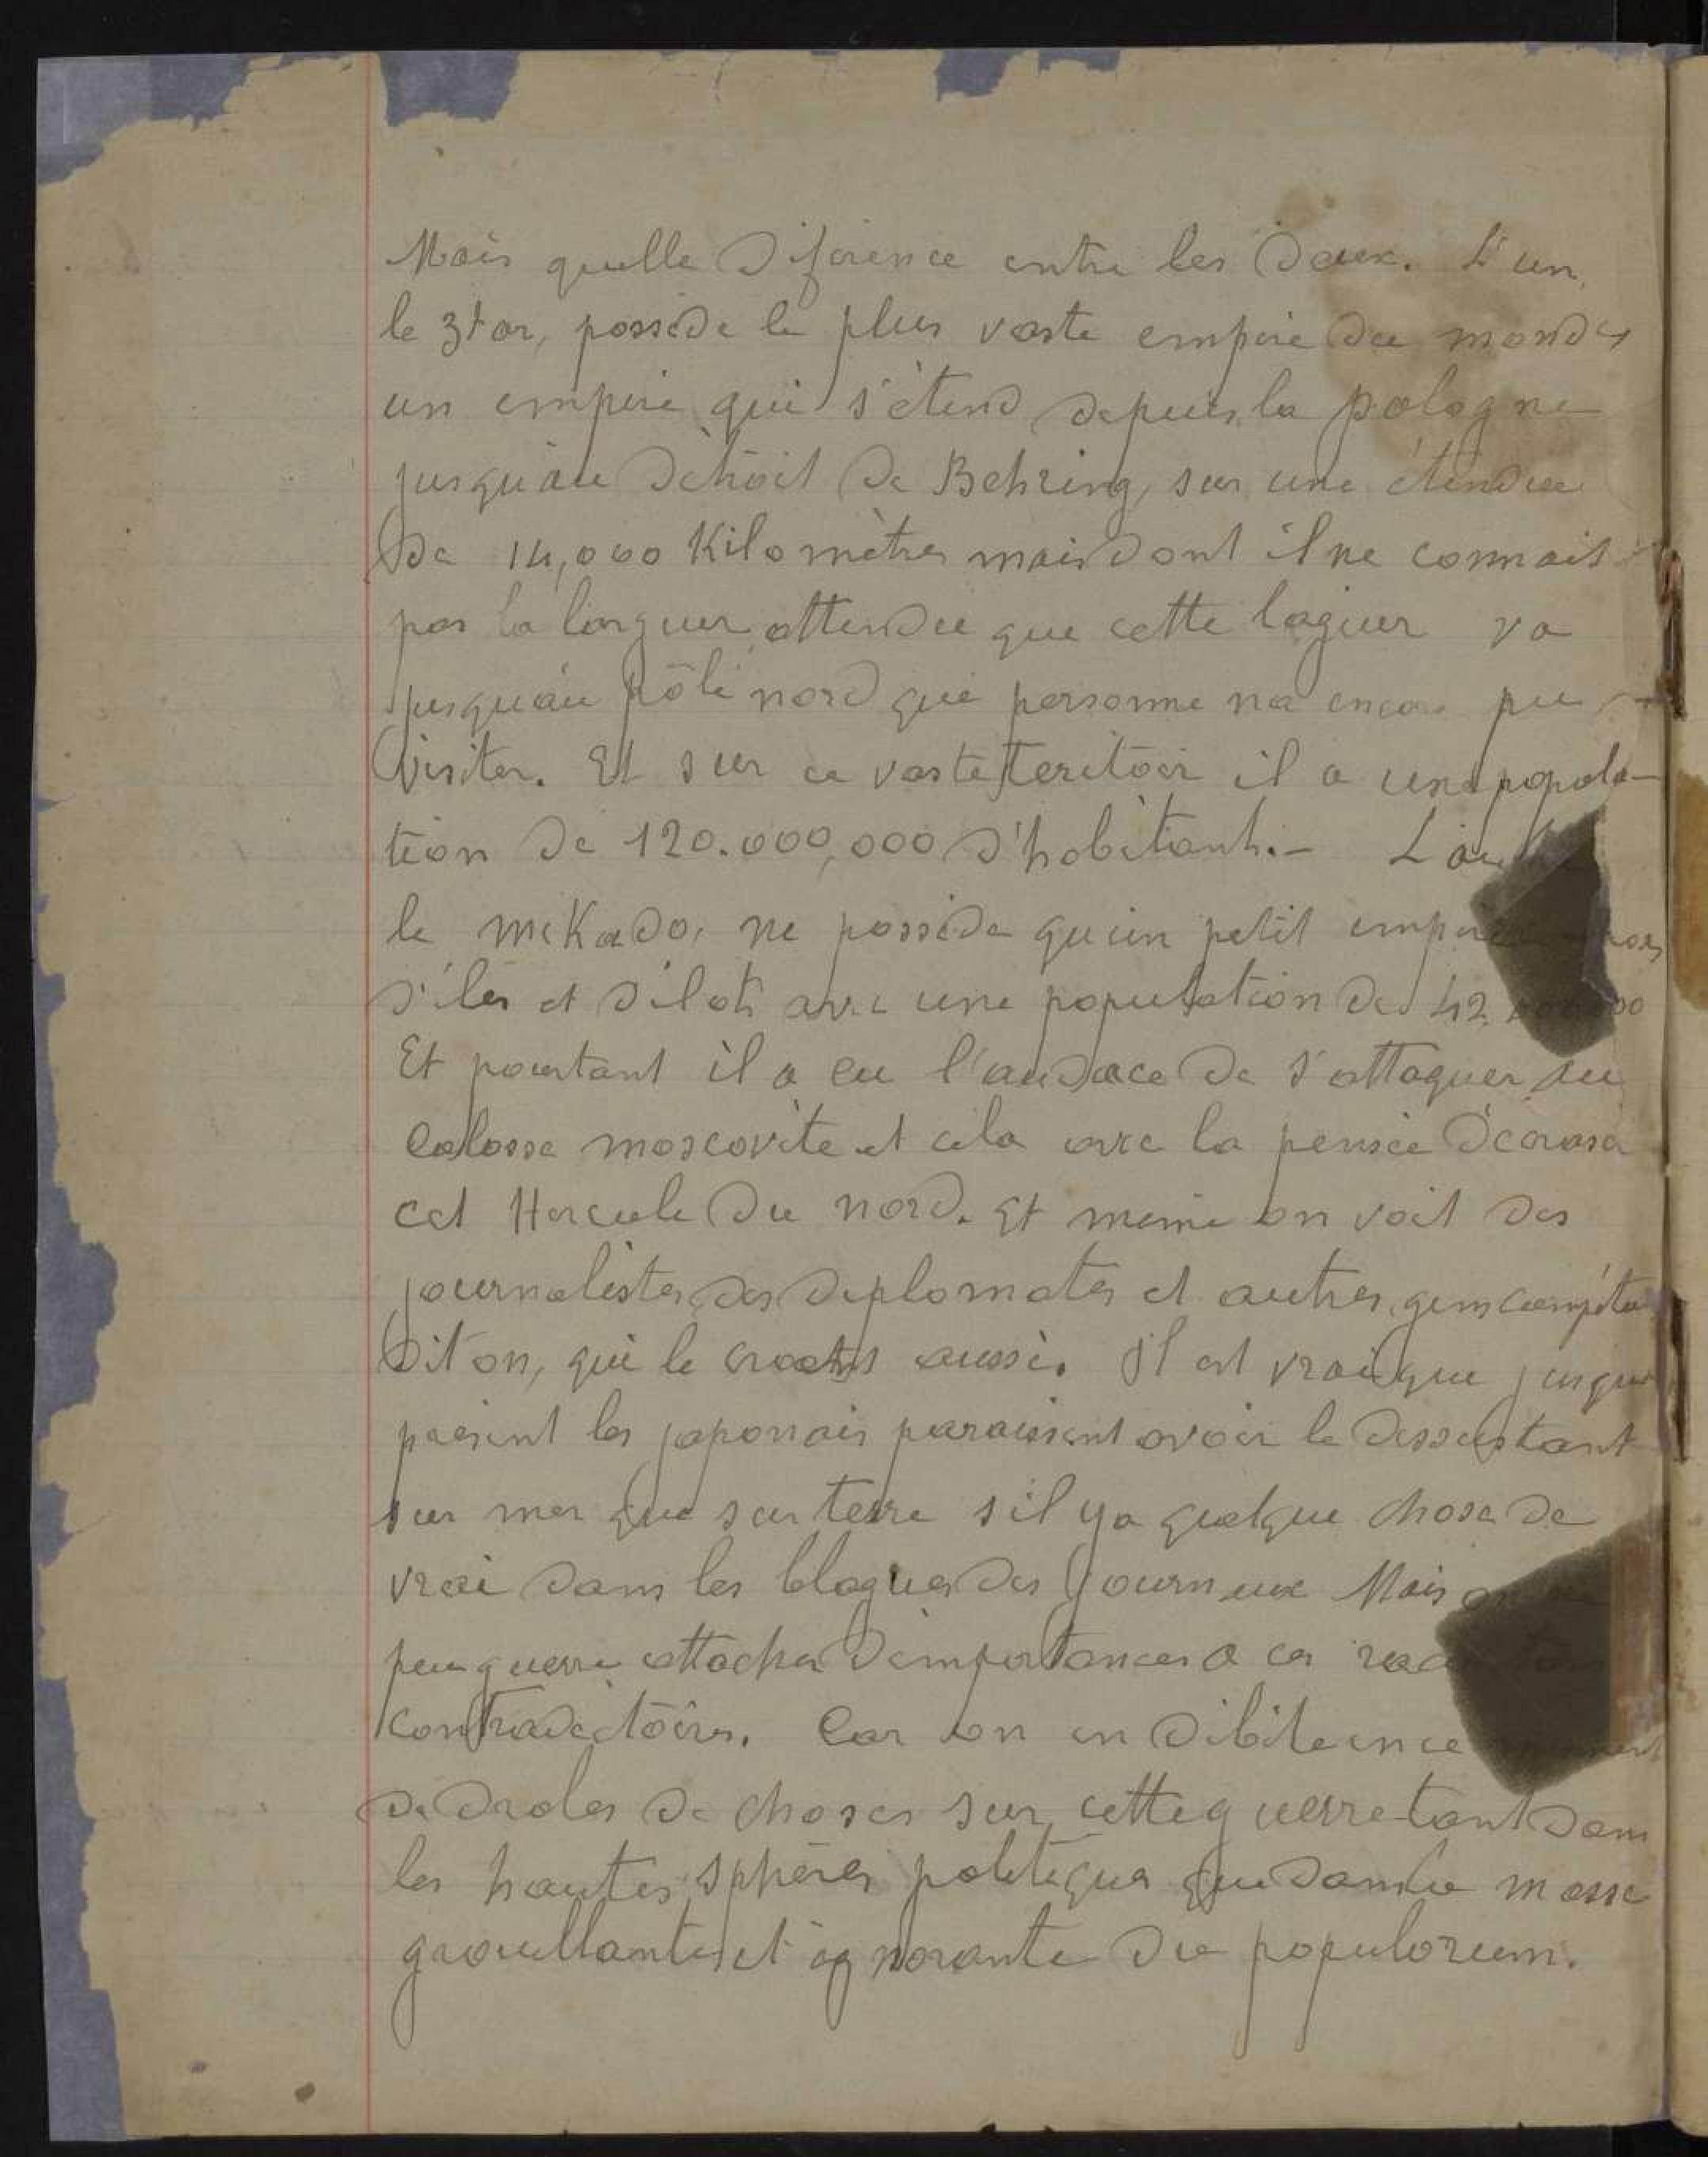 Mais quelle diference entre les deux. L'un,
le 3tar, possède le plus vaste empire du monde
un empire qui s'étend depuis la pologne
jusqu'au détroit de Behring, sur une étendue
de 14,000 Kilomètres mais dont il ne connait
pas la largeur, attendu que cette lageur va
jusqu'au pôle nord que personne na encor pu
visiter. Et sur ce vaste teritoir il a une popula-
tion de 120.000,000 d'habitants.-
le mikado, ne possède qu'un petit empire
d'iles et d'ilots avec une population de 42
Et pourtant il a eu l'audace de s'attaquer au
Colosse moscovite et cela avec la pensée d'écraser
cet Hercule du nord. Et meme on voit des
journalistes, des diplomates et autres gens
dit on, qui le croient aussi. Il est vrai que jusqu
présent les japonais paraissent avoir le dessus tant
sur mer que sur terre s'il ya quelque chose de
vrai dans les blagues des journaux Mais
peu guerre attacher d'importances a ces
contradictoires. Car on en débite en ce
de droles de choses sur cette guerre tant dans
les hautes sphères politiques que dans la masse
grouillante et ignorante du populorum.